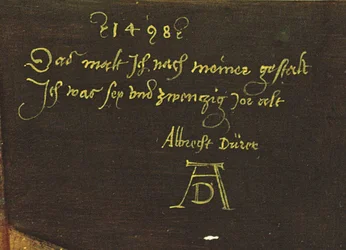 1498
Das malt Ich nach meiner gestalt
Ich was sex und zwenzig Jor alt
Albrecht Dürer
AD